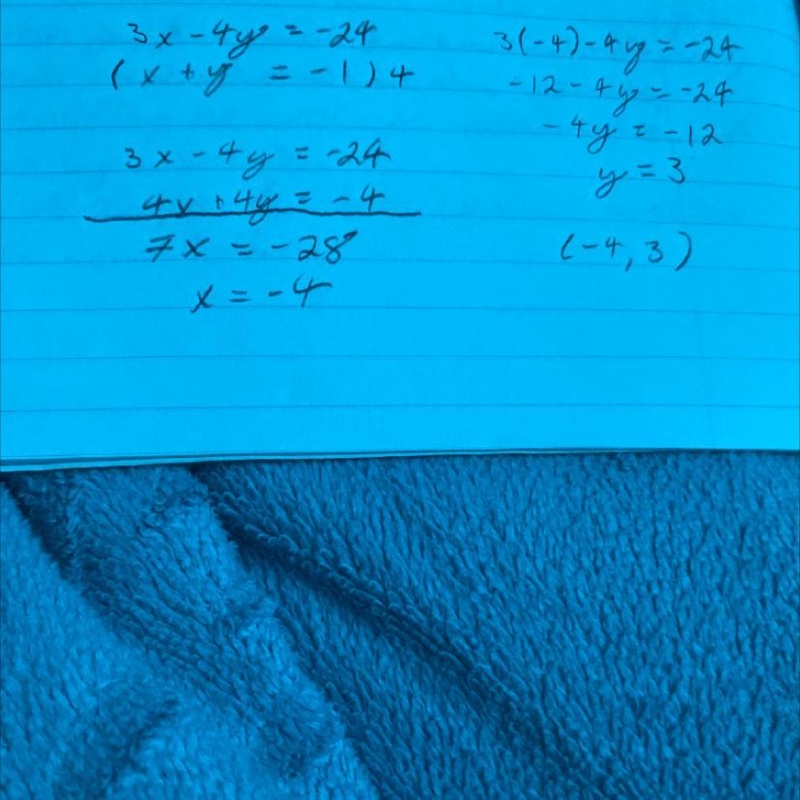 3x - 4y = -24
(x + y = -1) 4
3x - 4y = -24
4x + 4y = -4
7x = -28
x = -4
3(-4) - 4y = -24
-12 - 4y = -24
-4y = -12
y = 3
(-4, 3)